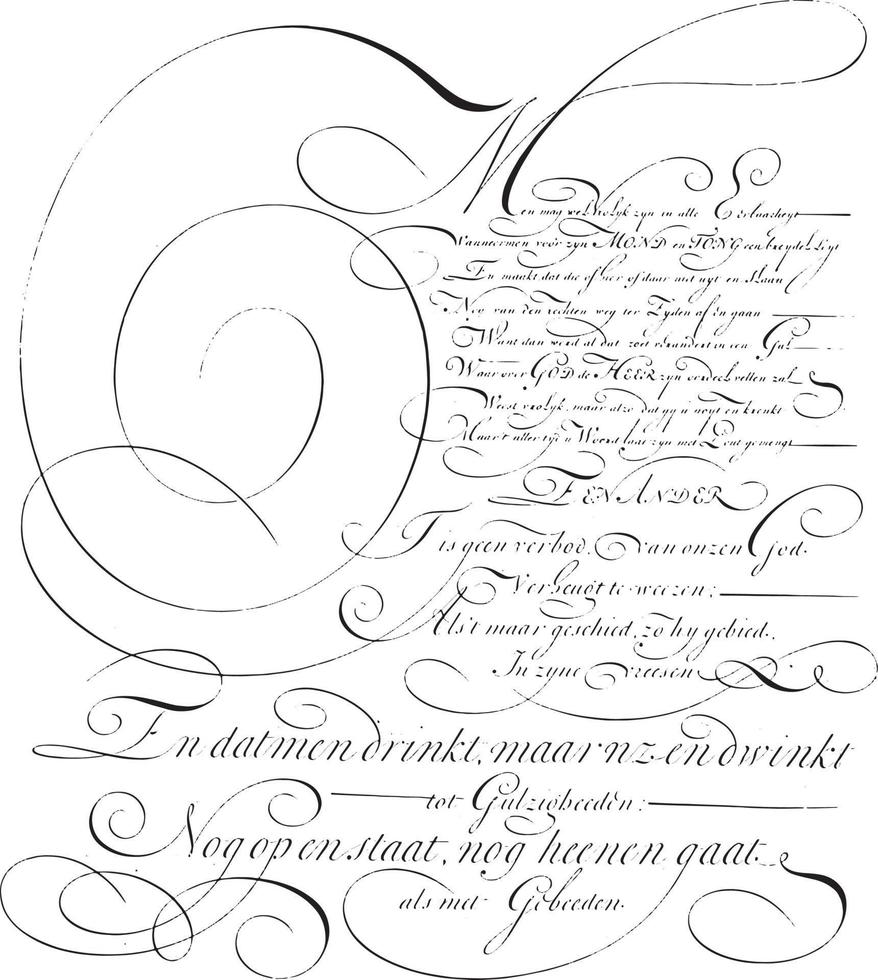 Men mag wel vrolyk zyn in alle Eerbaarheyt
Wanneermen voor zyn MOND en TONG een breydel leyt
En maakt dat die of hier of daar niet uyt en slaan
Nog van den rechten weg ter Zyden af en gaan
Want dan werd al dat zoet verandert in een Gal
Waar over GOD de HEER zyn oordeel vellen zal
Weest vrolyk, maar alzo dat gy u noyt en krenkt
Maar t' aller tyd u Woord laat zyn met Zout gemengt
EEN ANDER
T is geen verbod, van onzen God.
Verheugt te weezen:
Als't maar geschied, zo hy gebied,
In zyne vreesen
En datmen drinkt, maar nz. en dwinkt
tot Gulzigheeden:
Nog op en staat, nog heenen gaat
als met Gebeeden.